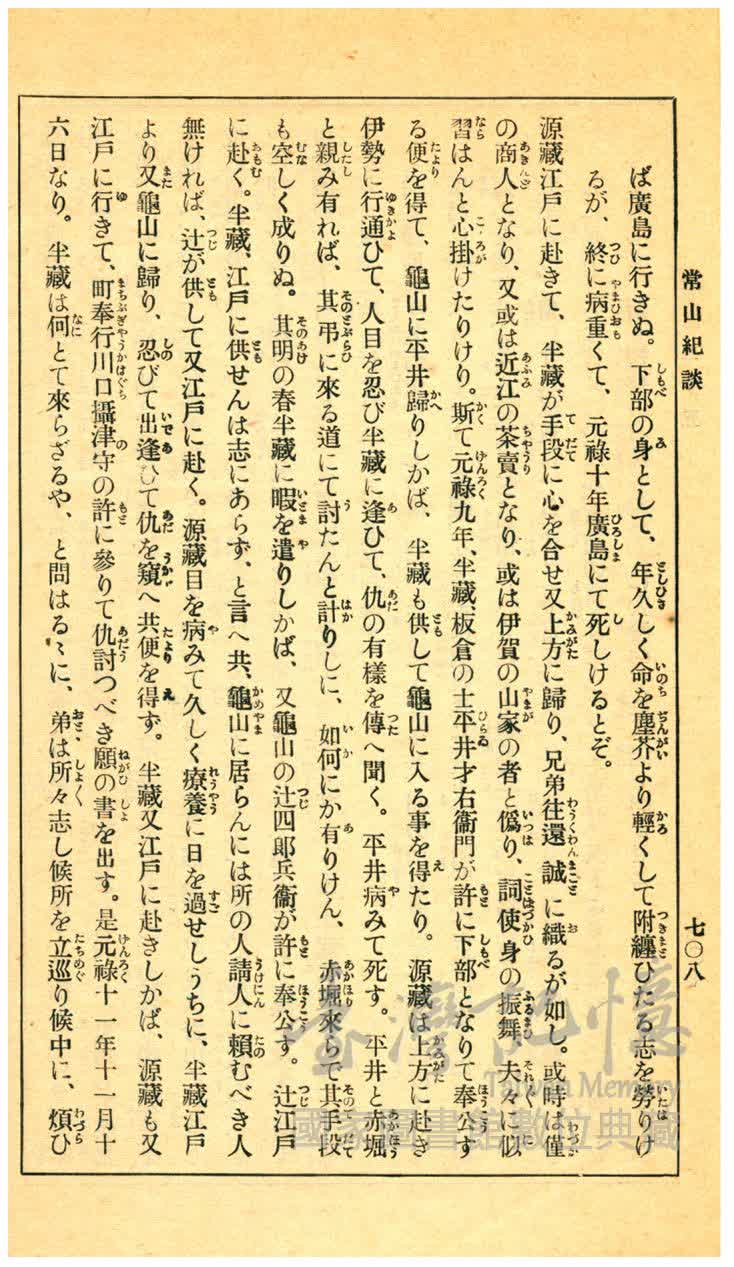 常山紀談
七〇八
ば廣島に行きぬ。下部の身として、年久しく命を塵芥より輕くして附纏ひたる志を勞りけ
るが、終に病重くて、元祿十年廣島にて死しけるとぞ。
源藏江戸に赴きて、半藏が手段に心を合せ又上方に歸り、兄弟往還誠に織るが如し。或時は僅
の商人となり、又或は近江の茶賣となり、或は伊賀の山家の者と僞り、詞使身の振舞、夫々に似
習はんと心掛けたりけり。斯て元祿九年、半藏、板倉の士平井才右衞門が許に下部となりて奉公す
る便を得て、龜山に平井歸りしかば、半藏も供して龜山に入る事を得たり。源藏は上方に赴き
伊勢に行通ひて、人目を忍び半藏に逢ひて、仇の有樣を傳へ聞く。平井病みて死す。平井と赤堀
と親み有れば、其弔に來る道にて討たんと計りしに、如何にか有りけん、赤堀來らで其手段
も空しく成りぬ。其明の春半藏に暇を遣りしかば、又龜山の辻四郎兵衞が許に奉公す。辻江戸
に赴く。半藏、江戸に供せんは志にあらず、と言へ共、龜山に居らんには所の人請人に賴むべき人
無ければ、辻が供して又江戸に赴く。源藏目を病みて久しく療養に日を過せしうちに、半藏江戸
より又龜山に歸り、忍びて出逢ひて仇を窺へ共便を得ず。半藏又江戸に赴きしかば、源藏も又
江戸に行きて、町奉行川口攝津守の許に參りて仇討つべき願の書を出す。是元祿十一年十一月十
六日なり。半藏は何とて來らざるや、と問はるゝに、弟は所々志し候所を立巡り候中に、煩ひ
臺灣記憶
Taiwan Memory
國家圖書館數位典藏